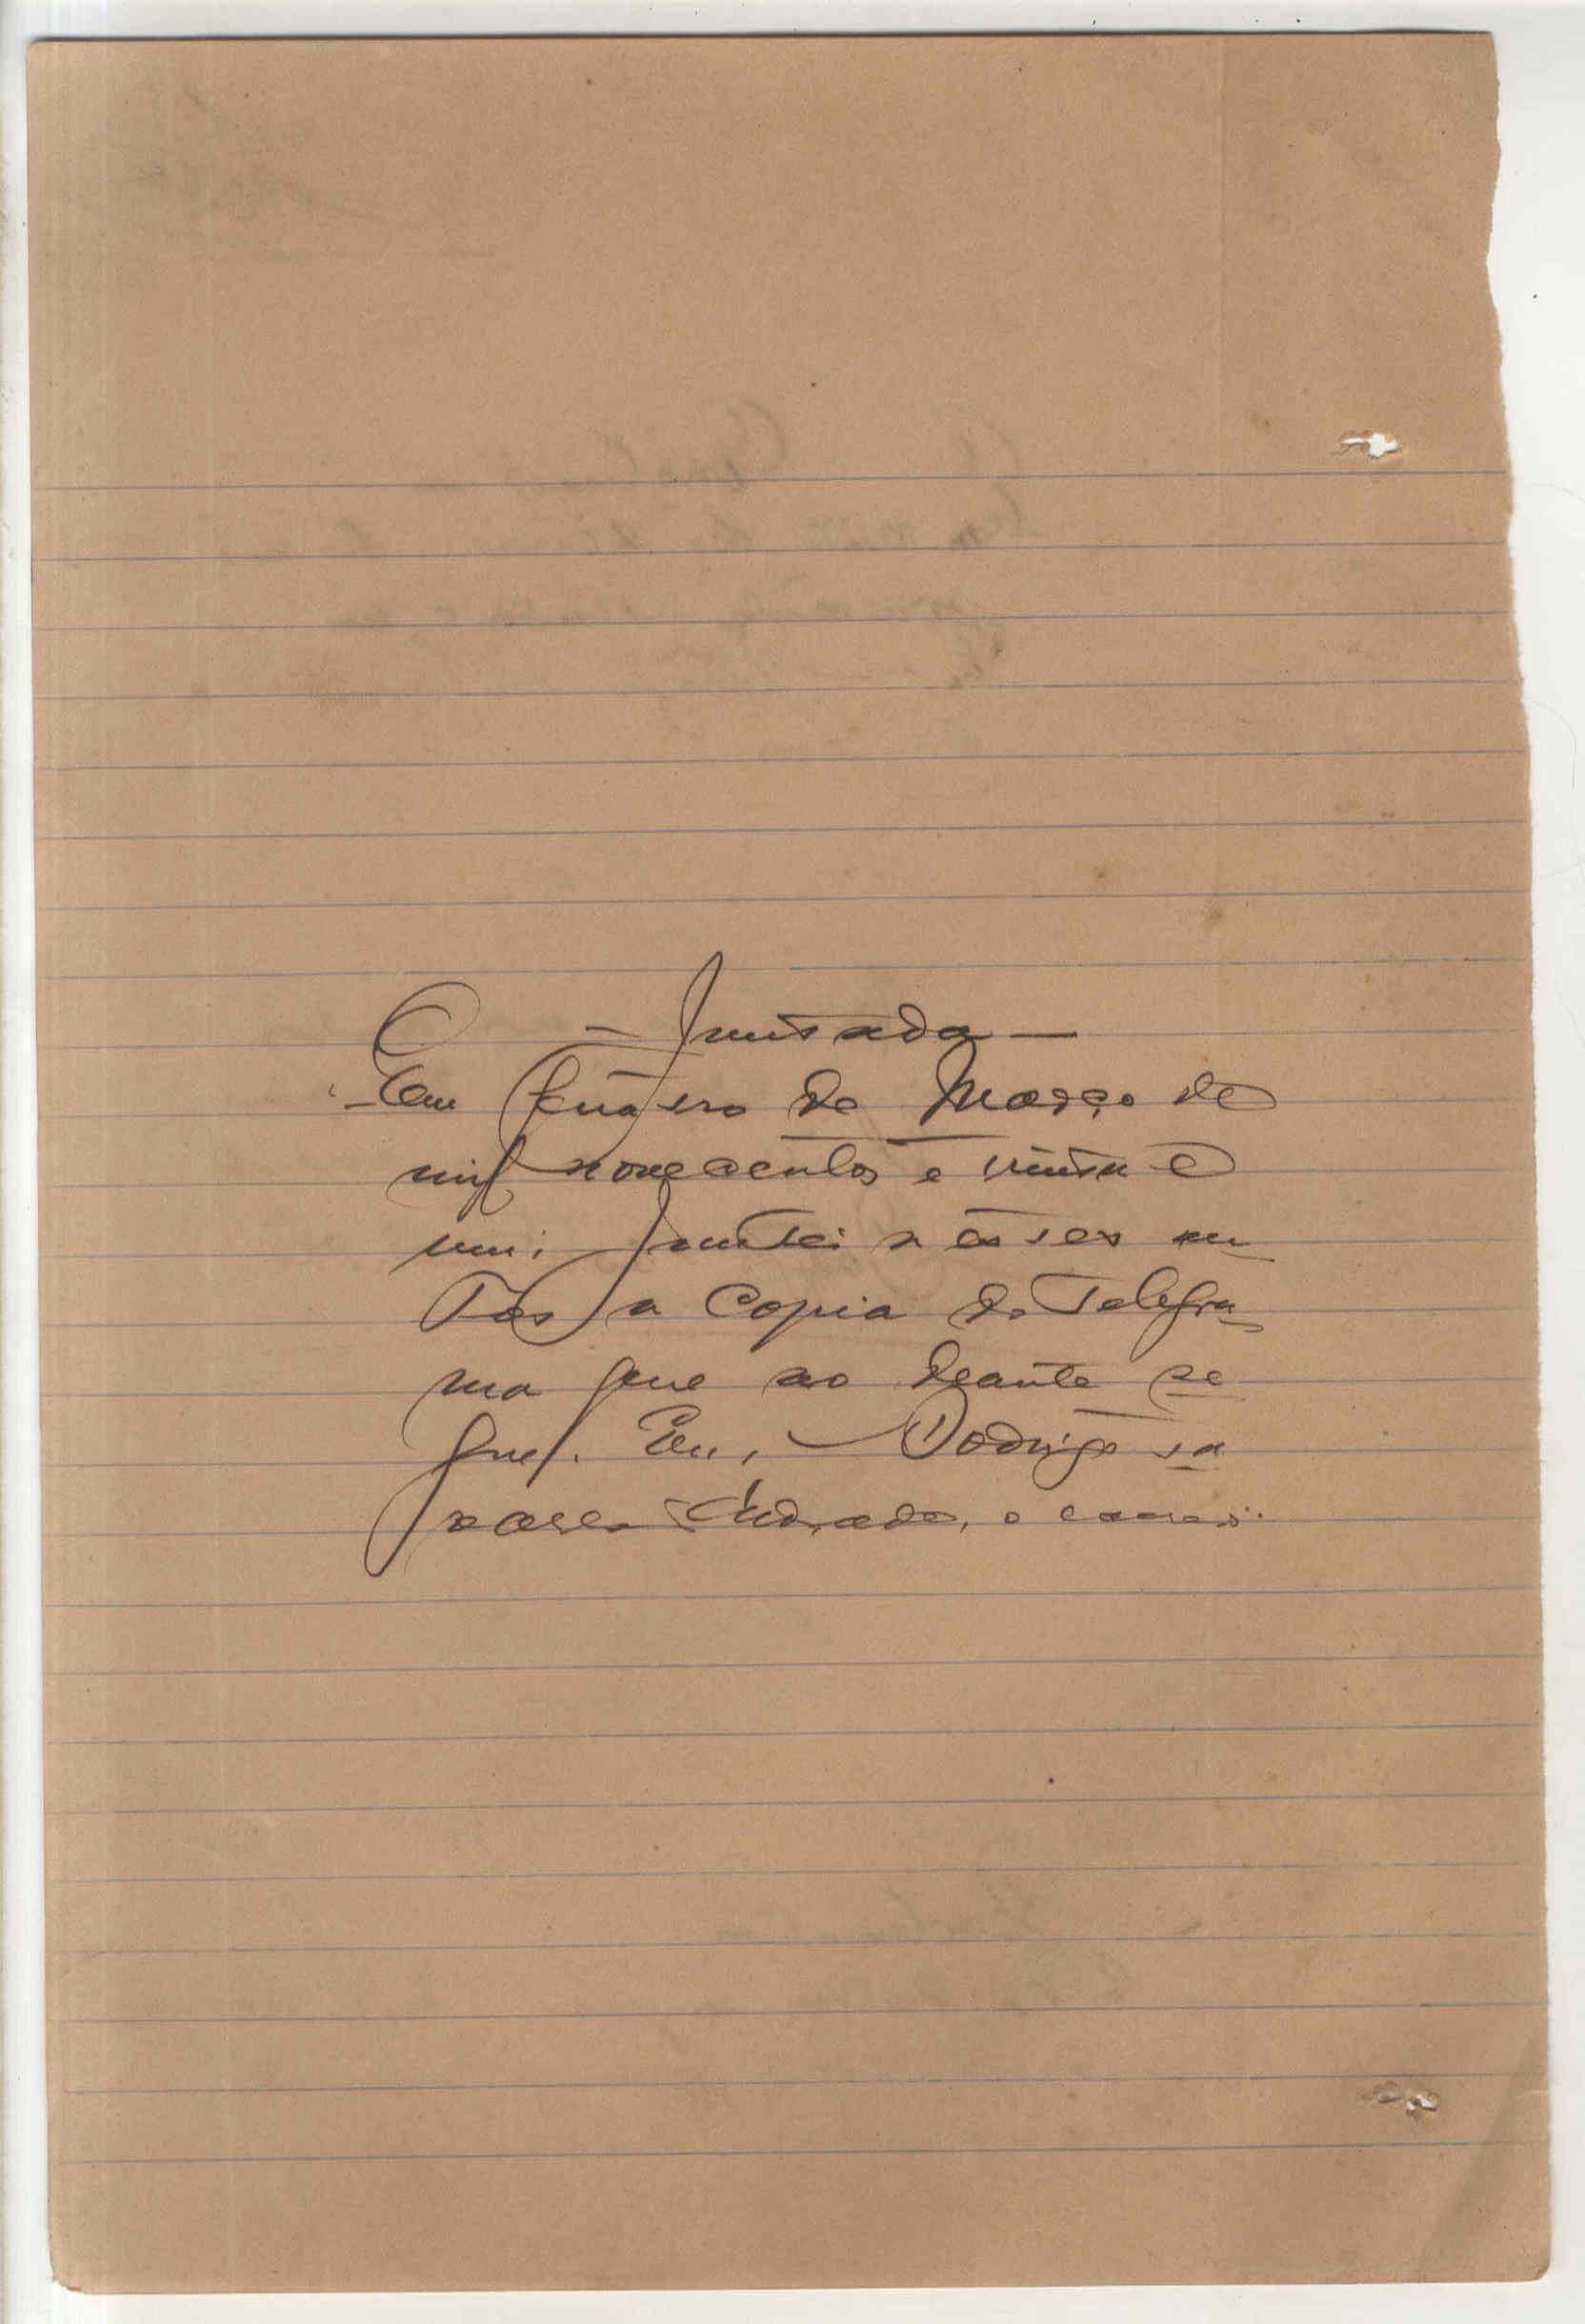 — Juntada —
Em de Março de
mil novecentos e vinte e
um, juntei a estes au
tos a copia do telegra
ma que ao deante se
gue. Eu, Rodrigo
Andrade, o